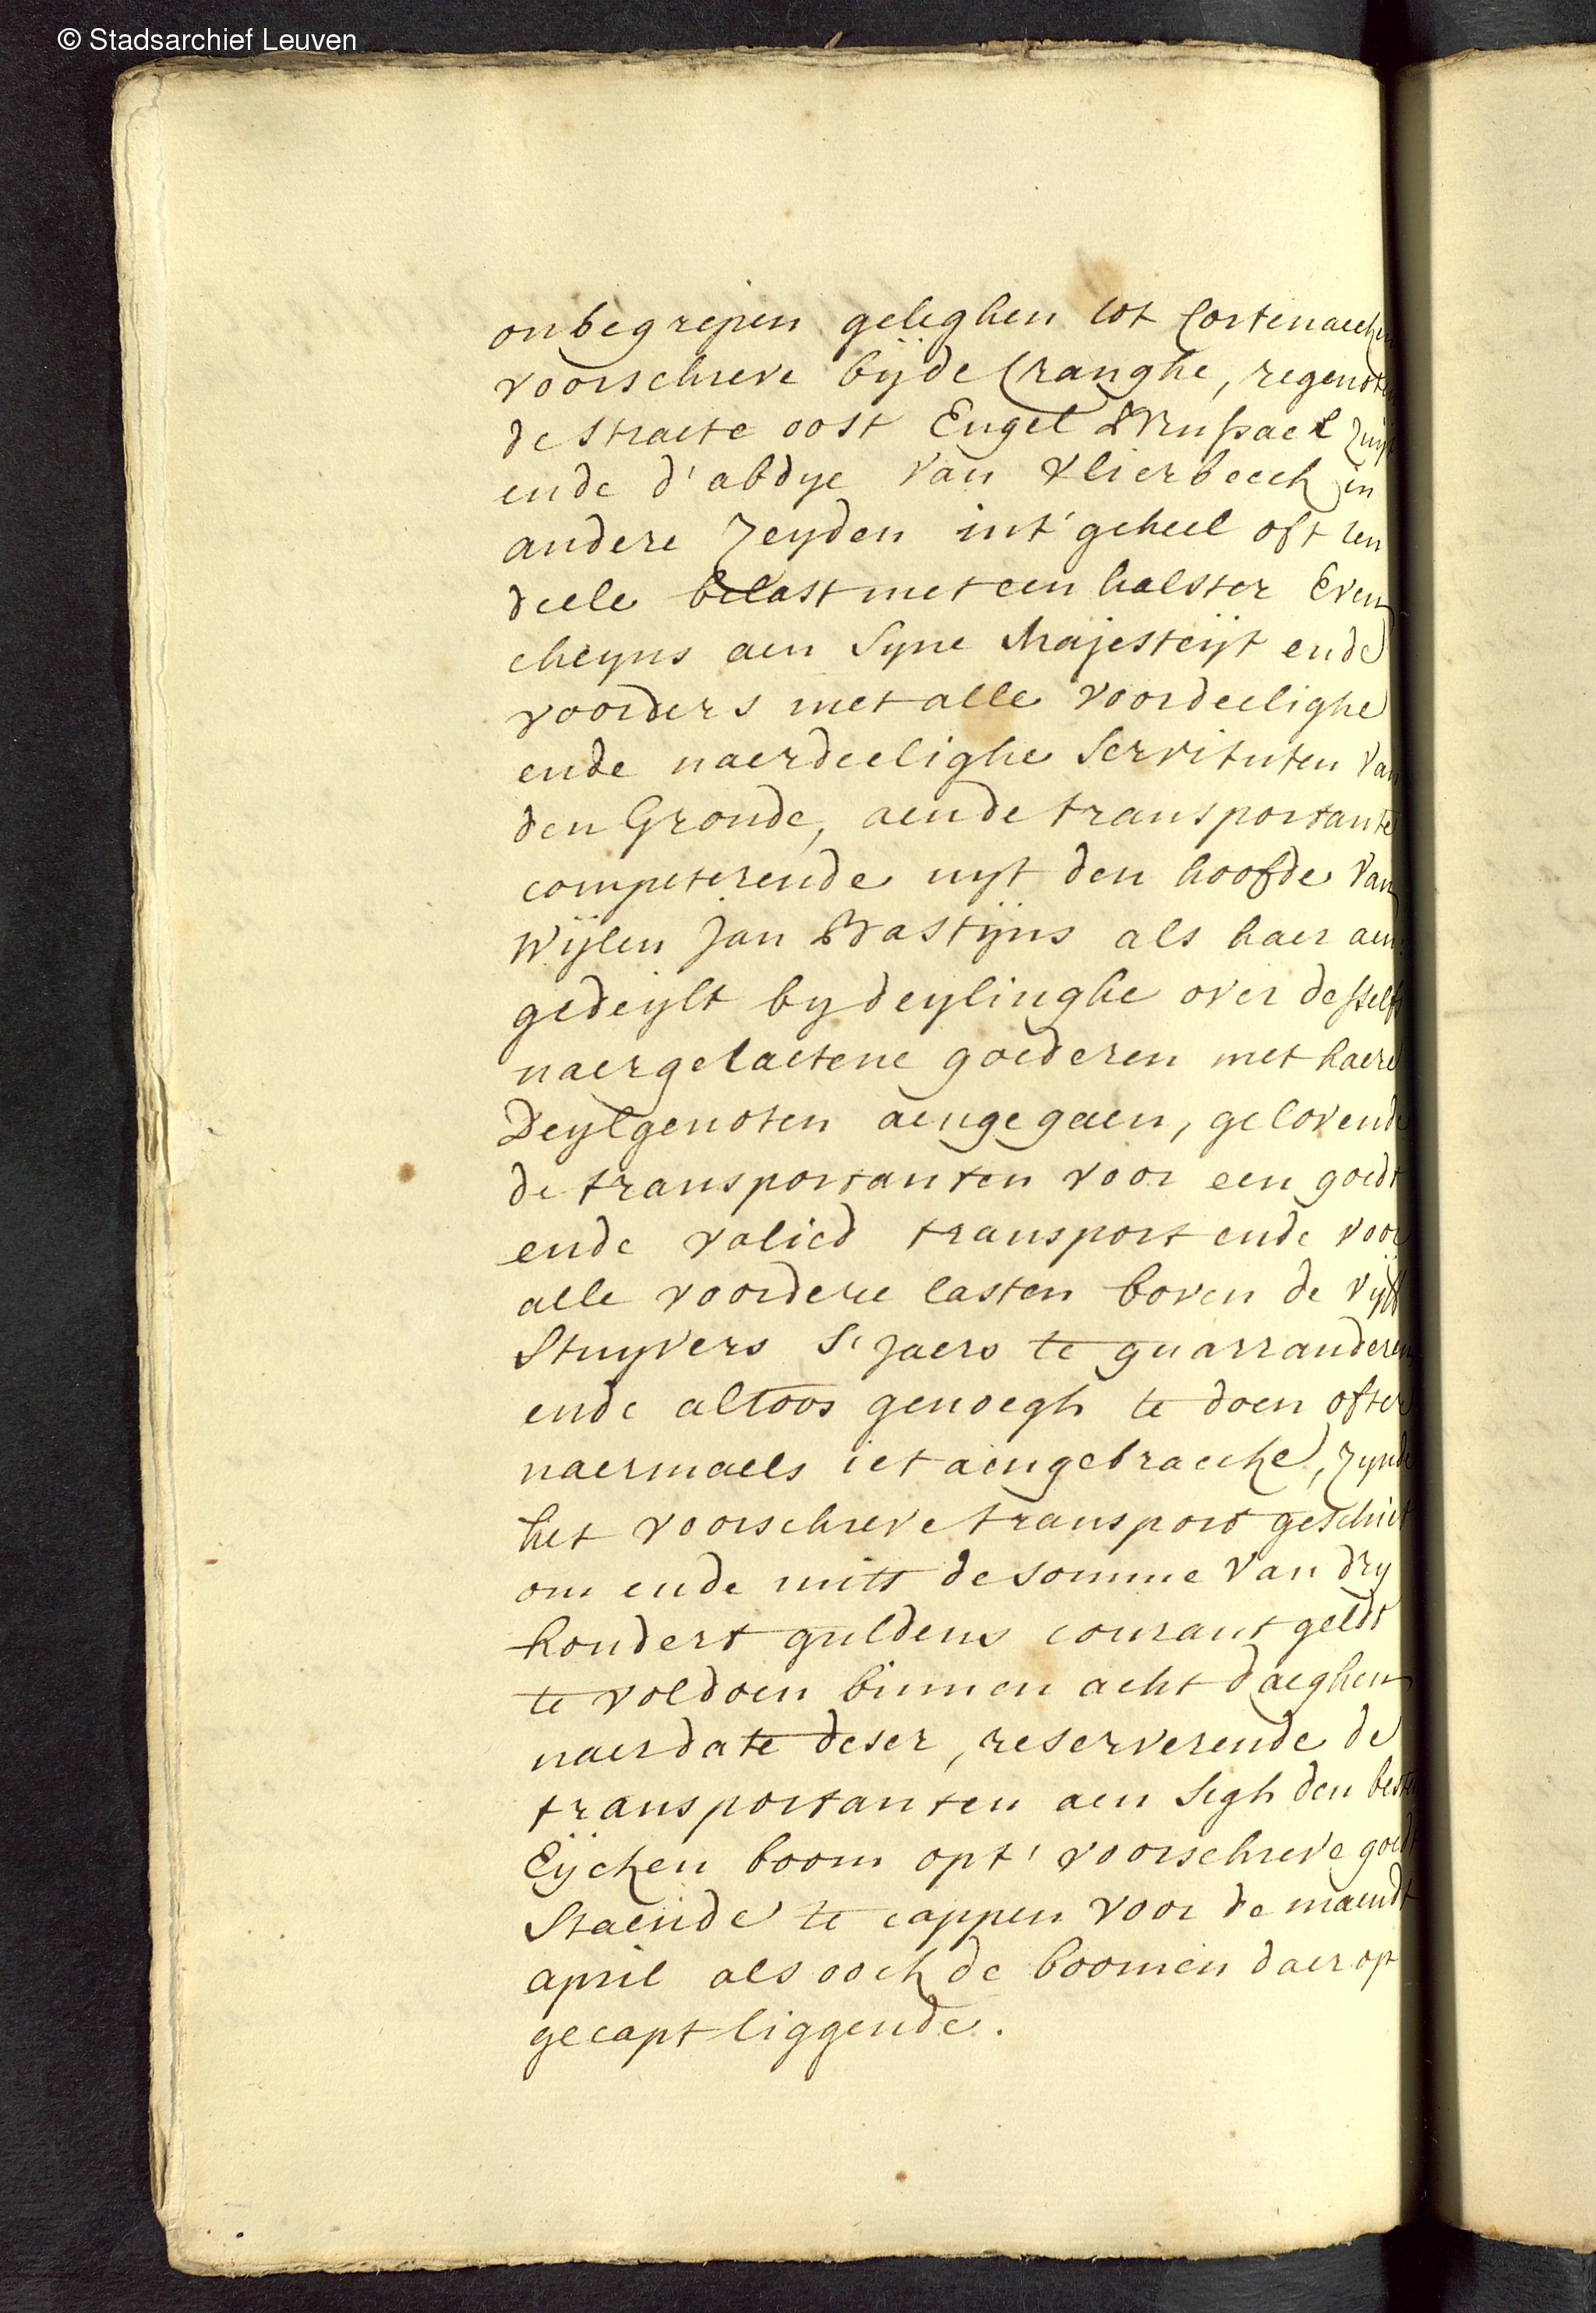 © Stadsarchief Leuven
onbegrepen geleghen tot Cortenaecken
voorschreve bijde Cranghe, regenoten
de straete oost Engel Brussael zuyt
ende d'abdye van Vlierbeeck in
andere zeyden int' geheel oft ten
deele belast met een halster Even
cheyns aen Syne Majesteyt ende
voorders met alle voordeelighe
ende naerdeelighe servituten van
den Gronde, aende transportante
competerende uyt den hoofde van
Wijlen Jan Bastijns als haer aen
gedeylt by deylinghe over desselfs
naergelaetene goederen met haere
Deylgenoten aengegaen, gelovende
de transportanten voor een goedt
ende valied transport ende voor
alle voordere lasten boven de vijff
Stuyvers S'jaers te guarranderen
ende altoos genoegh te doen ofter
naermaels iet aengebraecke, zynde
het voorschreve transport geschiet
om ende mits de somme van dry
hondert guldens courant geldt
te voldoen binnen acht daeghen
naer date deser, reserverende de
transportanten aen sigh den besten
Eijcken boom opt' voorschreve goedt
Staende te cappen voor de maendt
april als oock de boomen daer op
gecapt liggende.